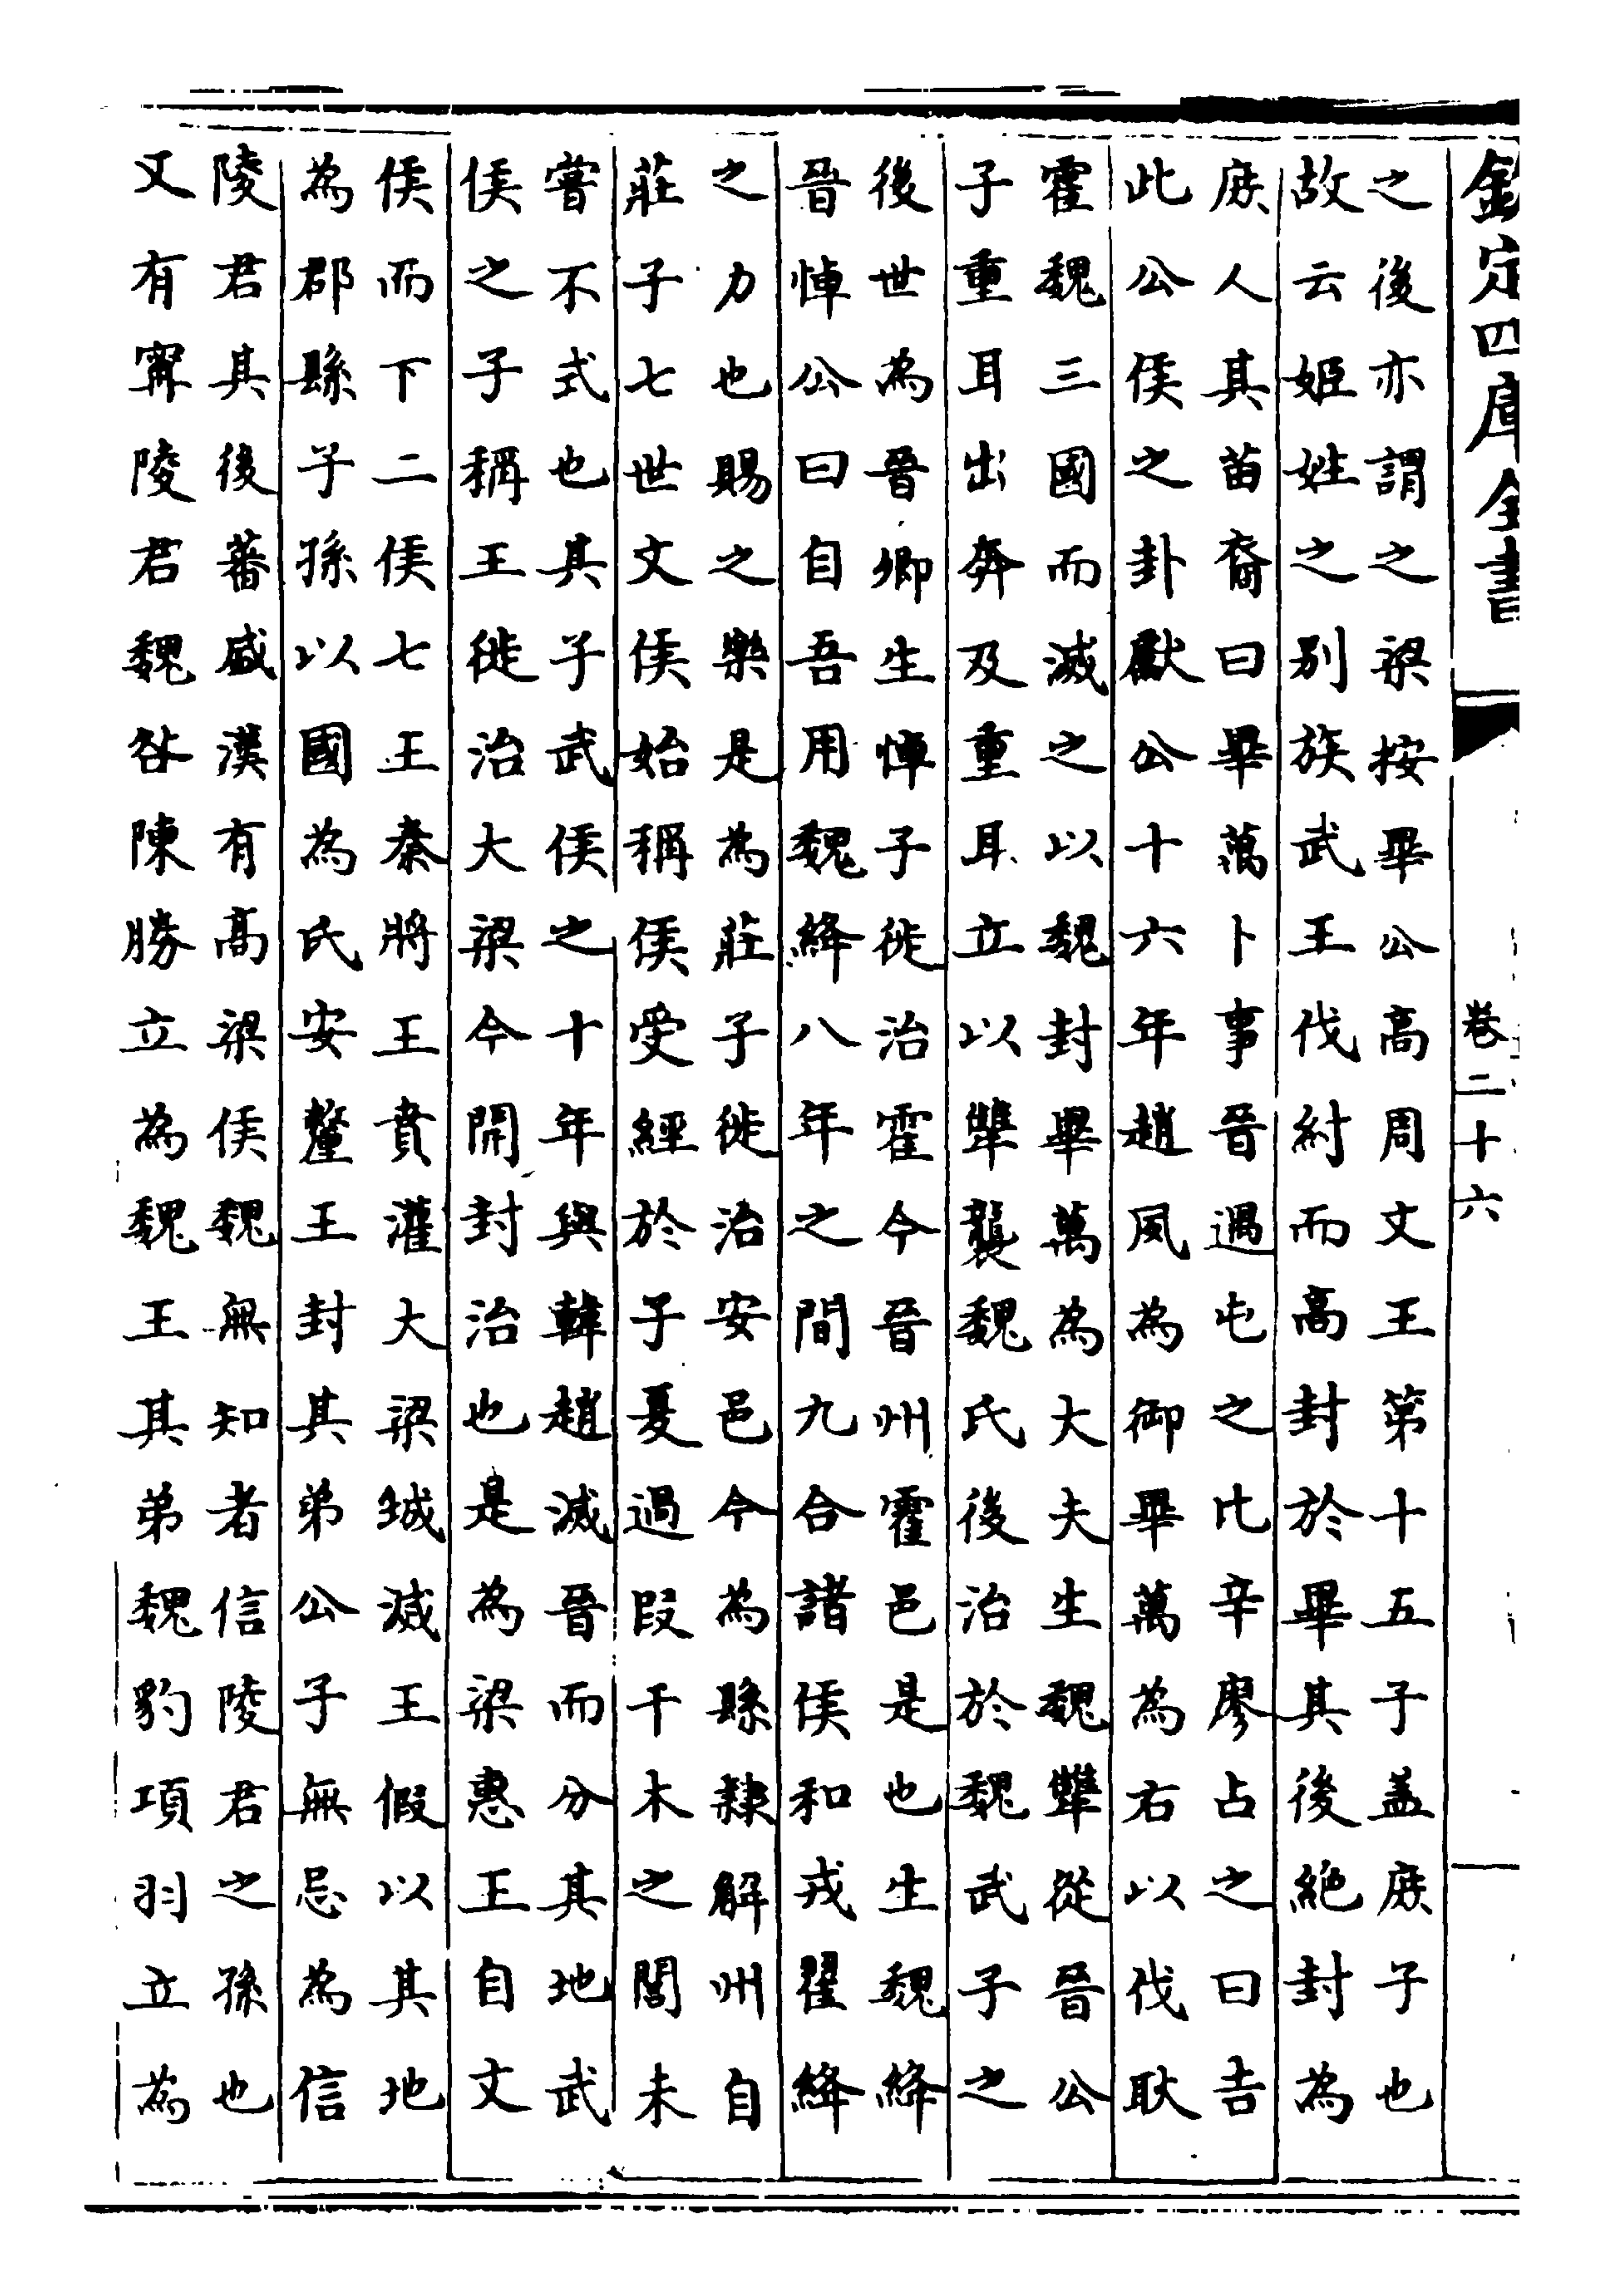 欽定四庫全書
卷二十六
之後亦謂之梁按畢公高周文王第十五子盖庻子也
故云姬姓之别族武王伐紂而高封於畢其後絶封為
庻人其苗裔曰畢萬卜事晉遇屯之比辛廖占之曰吉
此公侯之卦獻公十六年趙夙為御畢萬為右以伐耿
霍魏三國而滅之以魏封畢萬為大夫生魏犨從晉公
子重耳出奔及重耳立以犨襲魏氏後治於魏武子之
後世為晉卿生悼子徙治霍今晉州霍邑是也生魏絳
晉悼公曰自吾用魏絳八年之間九合諸侯和戎翟絳
之力也賜之樂是為莊子徙治安邑今為縣隸解州自
莊子七世文侯始稱侯受經於子夏過段干木之閭未
嘗不式也其子武侯之十年與韓趙滅晉而分其地武
侯之子稱王徙治大梁今開封治也是為梁惠王自文
侯而下二侯七王秦將王賁灌大梁城滅王假以其地
為郡縣子孫以國為氏安釐王封其弟公子無忌為信
陵君其後蕃盛漢有高梁侯魏無知者信陵君之孫也
又有甯陵君魏咎陳勝立為魏王其弟魏豹項羽立為